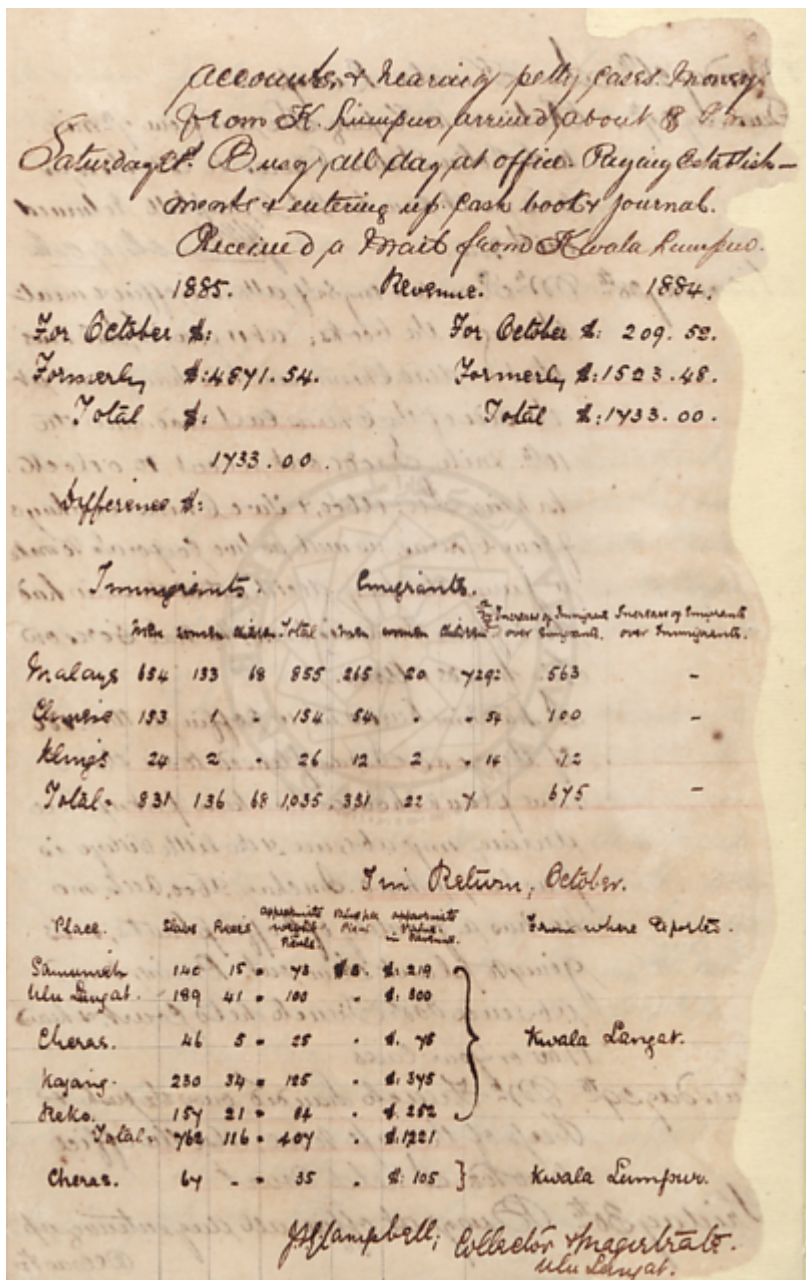 accounts & hearing petty cases. Money
from K. Lumpur arrived about 8 P.m.
Saturday Busy all day at office. Paying establish-
ments & entering up Cash book & journal.
Received a Mail from Kwala Lumpur.
1885. Revenue. 1884.
For October $: For October $: 209.52.
Formerly $:4871.54. Formerly $:1523.48.
Total $: Total $:1733.00.
1733.00.
Difference $:
Immigrants. Emigrants.
Men women children Total Men women children Increase of Immigrants over Emigrants. Increase of Emigrants over Immigrants.
Malays 654 133 68 855 265 20 7 292 563 -
Chinese 153 1 " 154 54 " " 54 100 -
Klings 24 2 " 26 12 2 " 14 12
Total. 831 136 68 1,035 331 22 7 675 -
Tin Return, October.
Place. Slabs Pieces approximate weight Pikuls. approximate value Revenue. From where Exported.
140 15 " 73 $ 3. $: 219
Ulu Langat. 189 41 " 100 $: 300
Cheras. 46 5 " 25 " $. 75 Kwala Langat.
Kajang. 230 34 " 125 " $: 375
Reko. 157 21 " 84 " $. 252
Total. 762 116 " 407 " $: 1221
Cheras. 64 " " 35 " $: 105 } Kwala Lumpur.
JACampbell, Collector & Magistrate.
Ulu Langat.